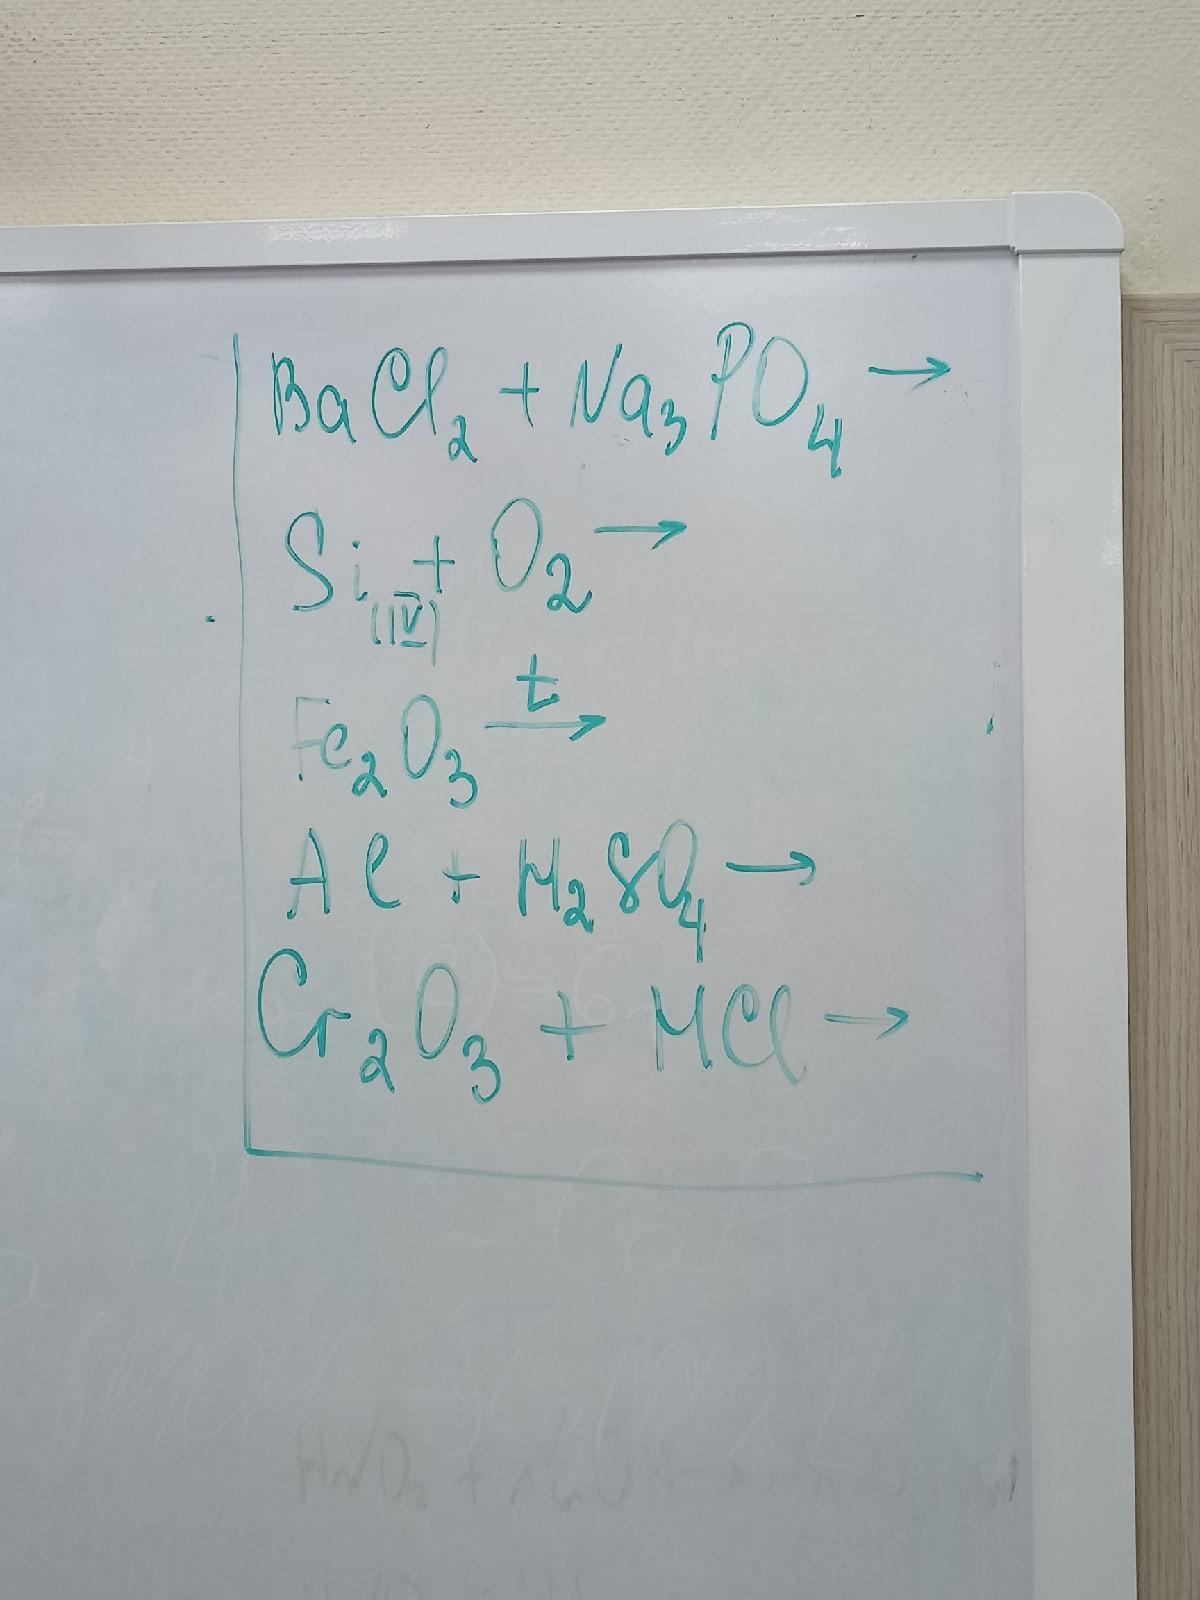 BaCl₂ + Na₃PO₄ →
Si(IV) + O₂ →
Fe₂O₃ t→
Al + H₂SO₄ →
Cr₂O₃ + HCl →